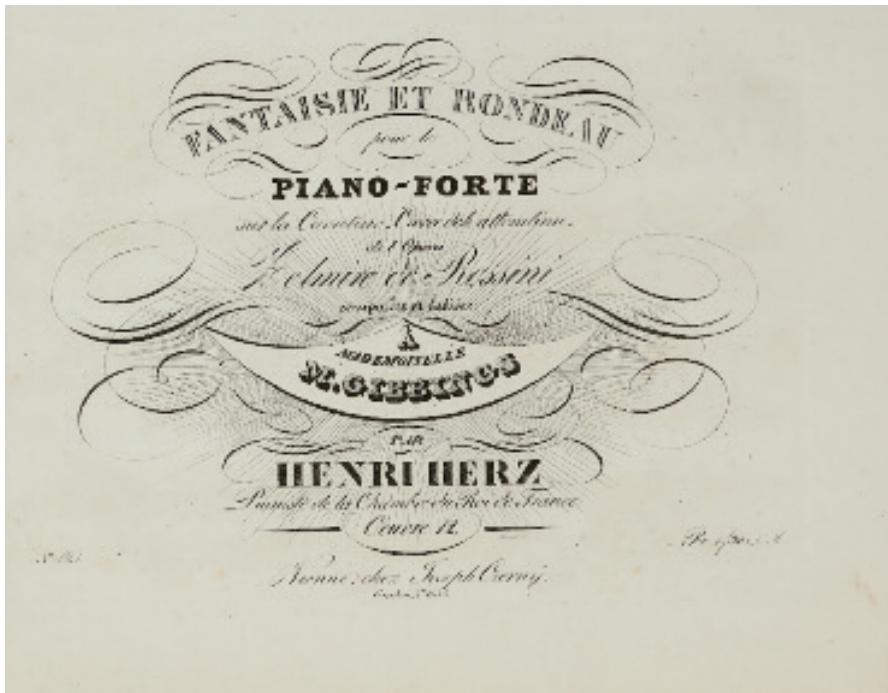 FANTAISIE ET RONDEAU
pour le
PIANO-FORTE
sur la Cavatine
de l'Opera
Zelmire de Rossini
composées et dédiées
A
MADEMOISELLE
M. GIBBINGS
PAR
HENRI HERZ
Pianiste de la Chambre du Roi de France
Oeuvre 12.
Vienne, chez Joseph Czerny.